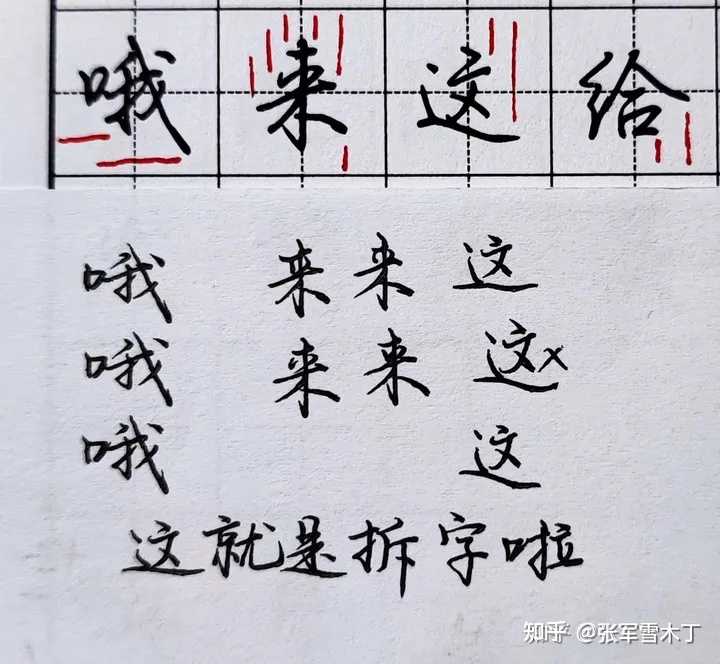 哦来这给
哦 来来 这
哦 来来 这×
哦 这
这就是拆字啦
知乎 @张军雪木丁